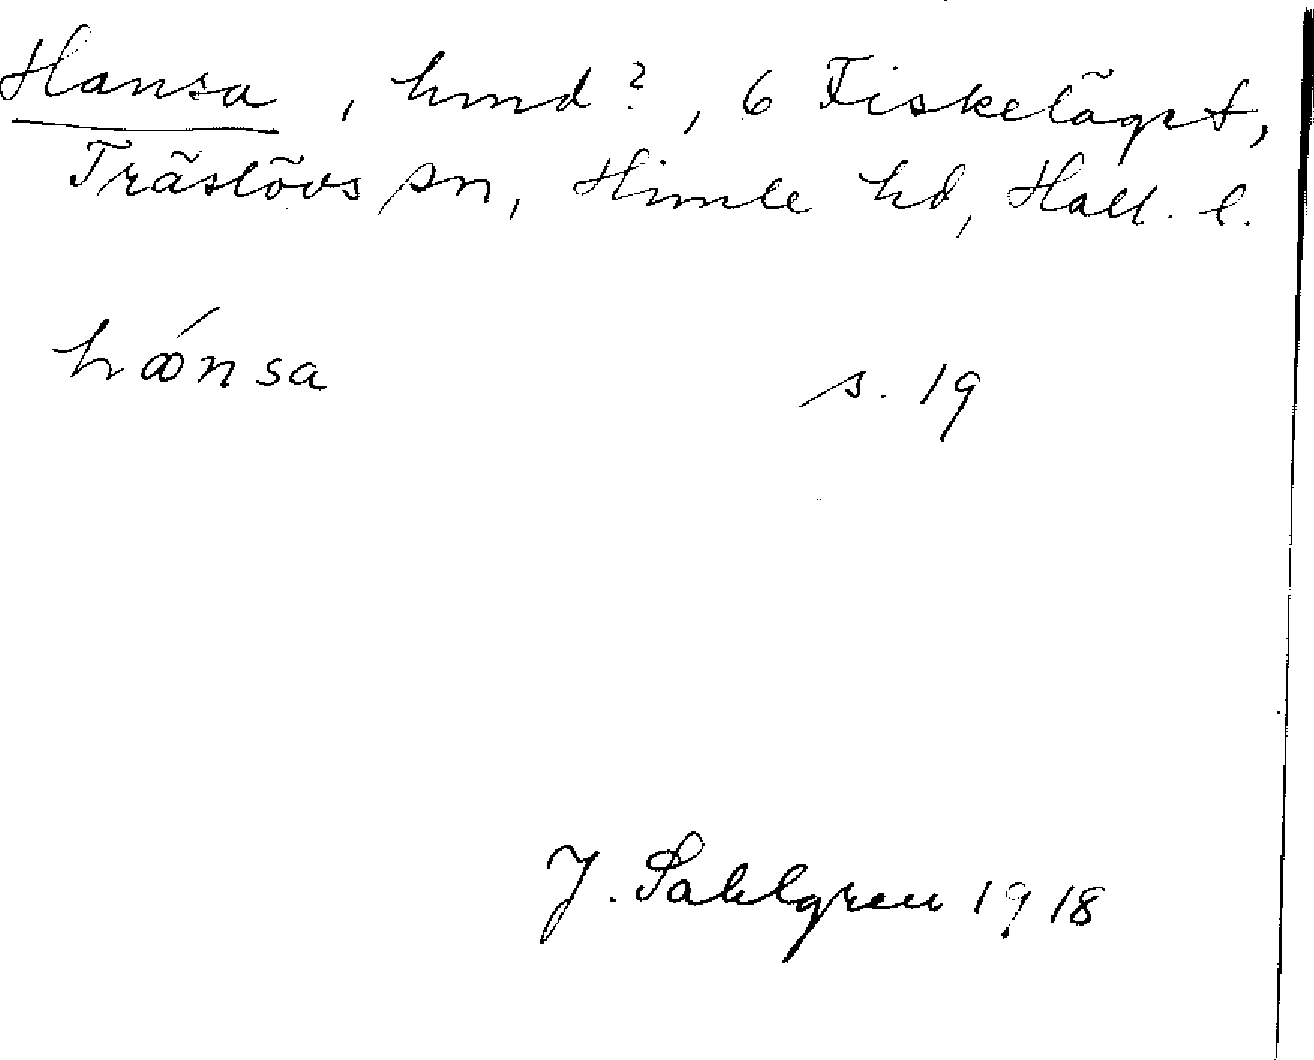 Hansa, hmd?, 6 Fiskeläget,
Träslövs sn, Himle hd, Hall. l.
hǿnsa s. 19
J. Sahlgren 1918